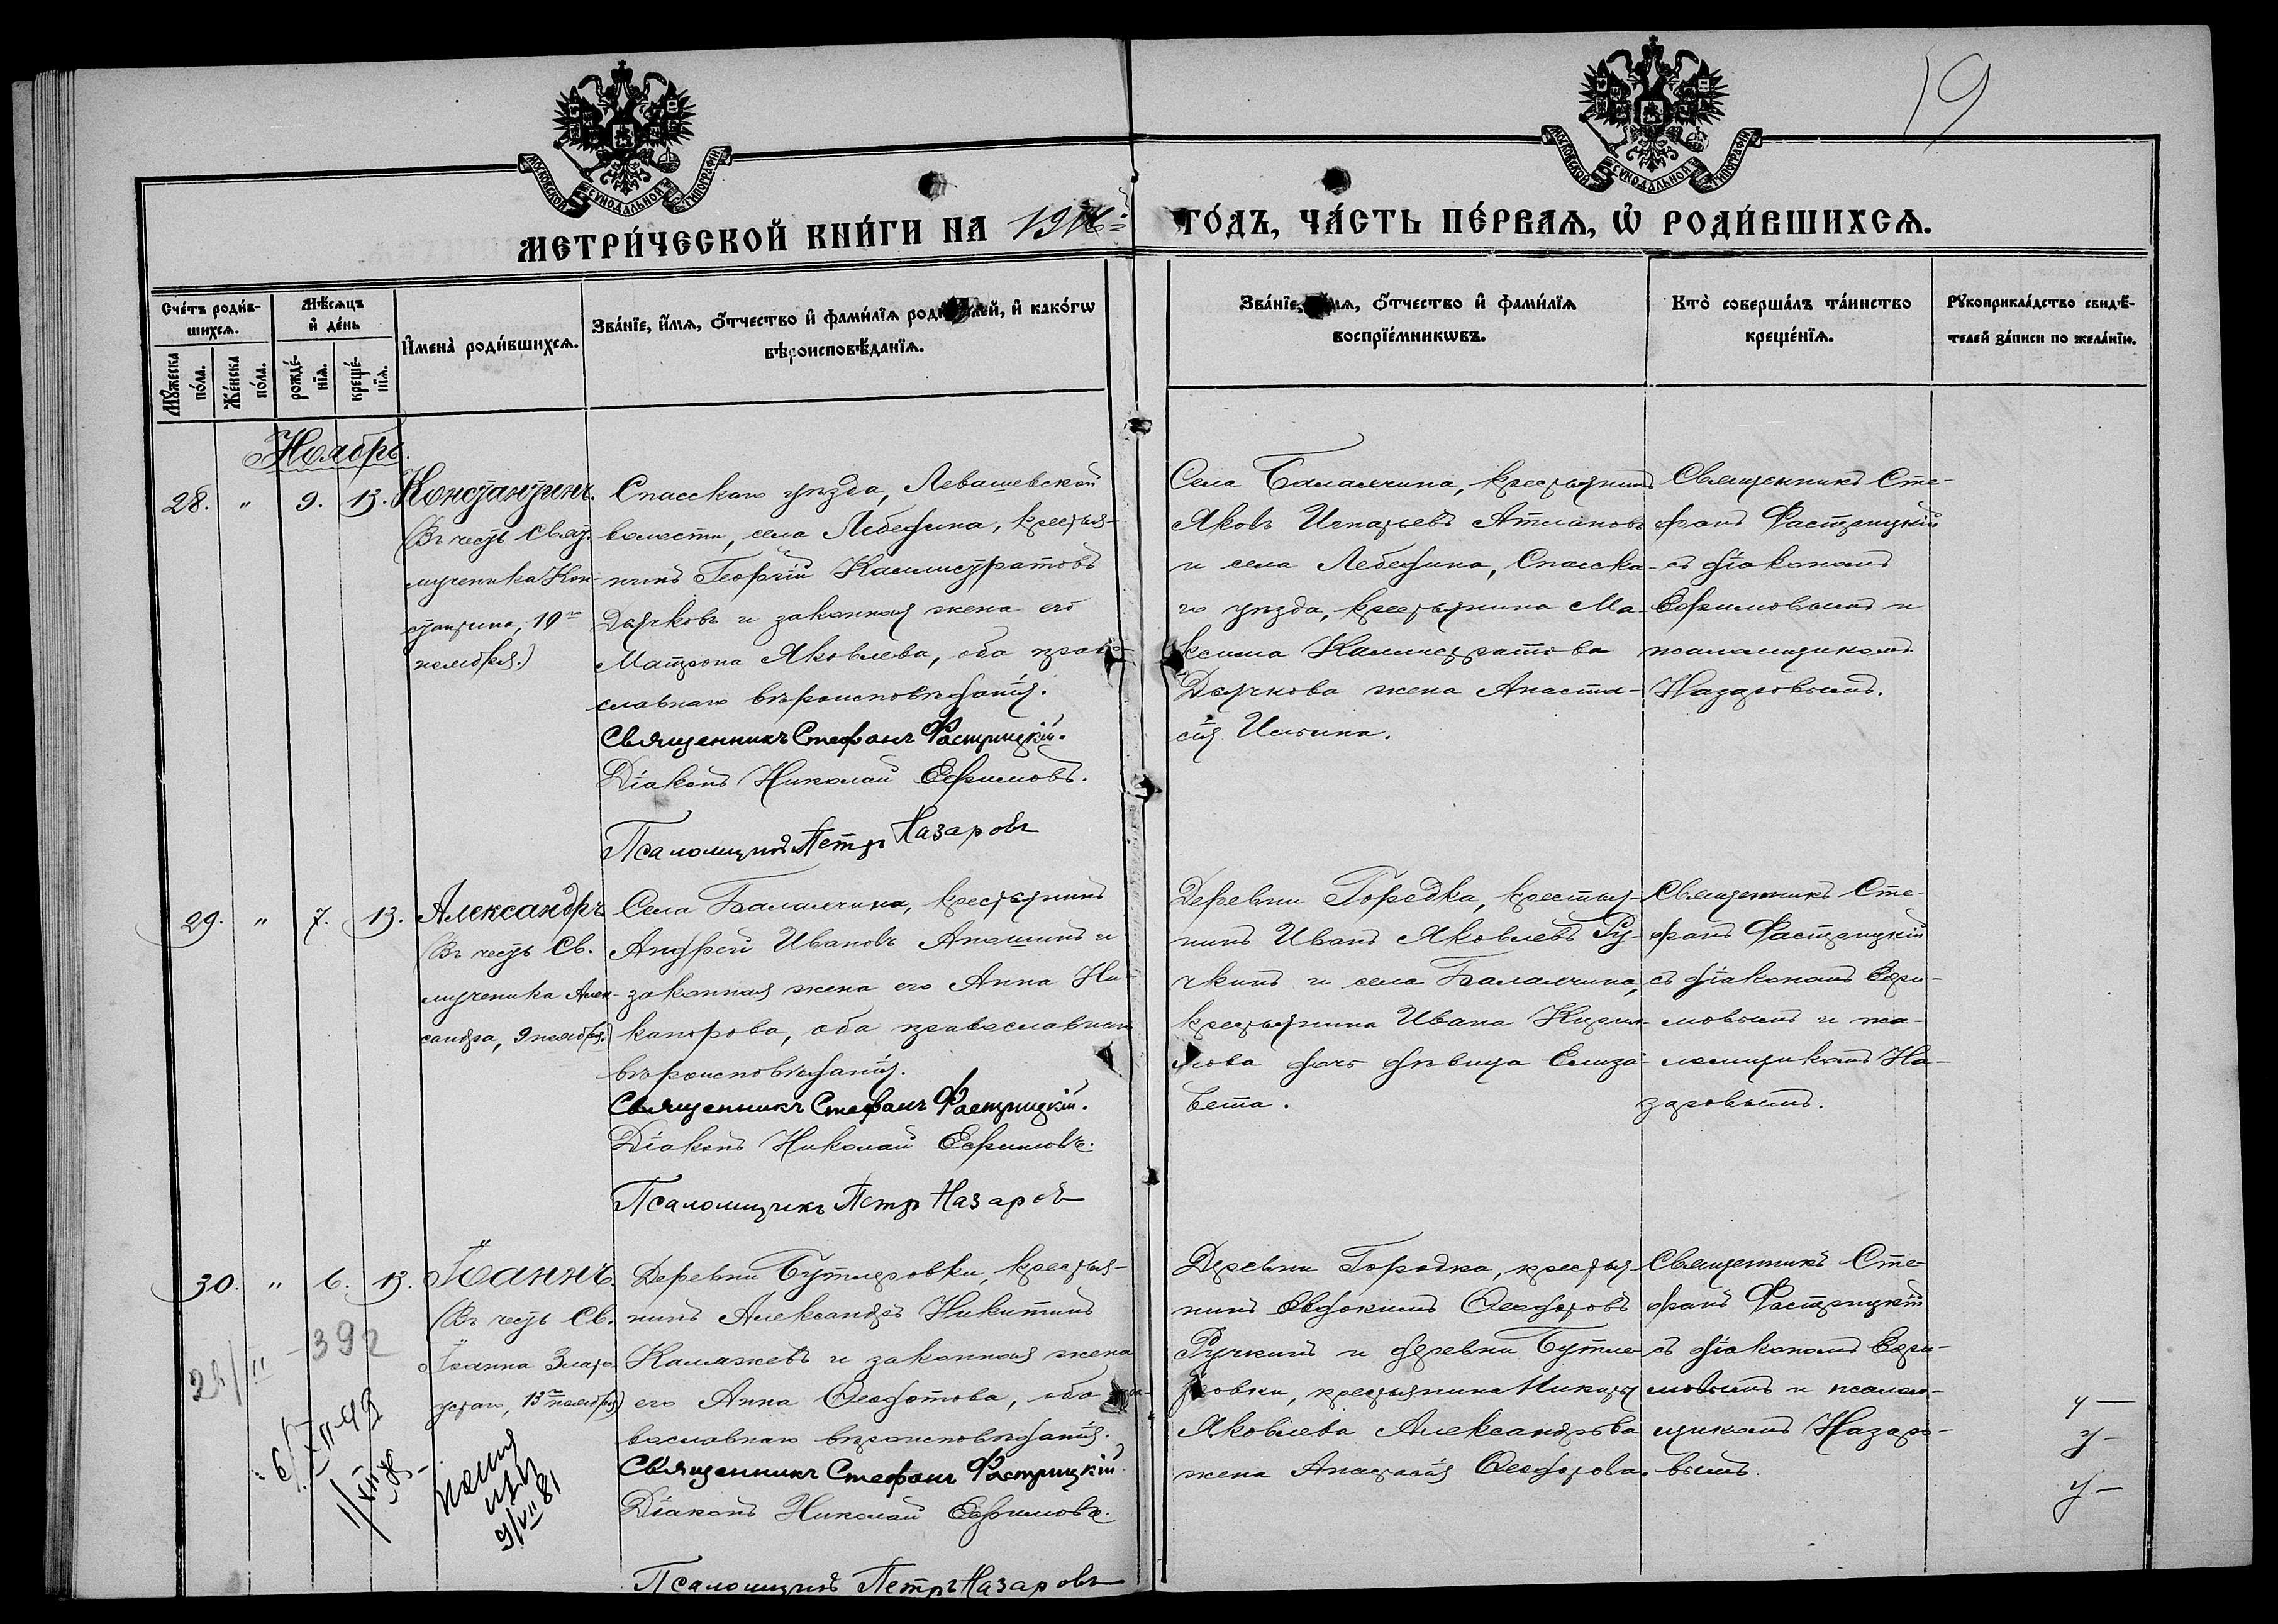 19
МОСКОВСКОЙ СѴНОДАЛЬНОЙ ТИПОГРАФІИ
МОСКОВСКОЙ СѴНОДАЛЬНОЙ ТИПОГРАФІИ
МЕТРИ́ЧЕСКОЙ КНИ́ГИ НА
ГО́ДЪ, ЧА́СТЬ ПЕ́РВАѦ, Ѡ҆ РОДИ́ВШИХСѦ.
Сче́тъ роди́в-
шихсѧ.
Мꙋ́жеска по́ла.
Же́нска по́ла.
Мѣ́сѧцъ
и҆ де́нь
рожде́-
нїѧ.
креще́-
нїѧ.
И҆мена̀ роди́вшихсѧ.
Зва́нїе, и҆́мѧ, ѻ҆́тчество и҆ фами́лїѧ роди́телей, и҆ како́гѡ
вѣроисповѣ́данїѧ.
Зва́нїе, и҆́мѧ, ѻ҆́тчество и҆ фами́лїѧ
воспрїе́мникѡвъ.
Кто̀ соверша́лъ та́инство
креще́нїѧ.
Рꙋкоприкла́дство свидѣ́-
телей за́писи по жела́нїю.
Ноябрь.
28. " 9. 13. Константинъ.
(Въ честь Свят.
мученика Кон-
стантина, 10го
ноября.)
Спасскаго уѣзда, Левашевской
волости, села Лебедина, крестья-
нинъ Георгій Каллистратовъ
Дьячковъ и законная жена его
Матрона Яковлева, оба право-
славнаго вѣроисповѣданія.
Священникъ Стефанъ Фастрицкій.
Діаконъ Николай Ефимовъ.
Псаломщикъ Петръ Назаровъ
Села Балахчина, крестьянинъ
Яковъ Игнатьевъ Атлановъ
и села Лебедина, Спасска-
го уѣзда, крестьянина Ма-
ксима Каллистратова
Дьячкова жена Анаста-
сія Ильина.
Священникъ Сте-
фанъ Фастрицкій
съ діакономъ
Ефимовымъ и
псаломщикомъ
Назаровымъ.
29. " 7. 13. Александръ
(Въ честь Св.
мученика Алек-
сандра, 9 ноября.)
Села Балахчина, крестьянинъ
Андрей Ивановъ Анешинъ и
законная жена его Анна Ни-
канорова, оба православнаго
вѣроисповѣданія.
Священникъ Стефанъ Фастрицкій.
Діаконъ Николай Ефимовъ.
Псаломщикъ Петръ Назаровъ
Деревни Городка, крестья-
нинъ Иванъ Яковлевъ Ру-
чкинъ и села Балахчина,
крестьянина Ивана Кирил-
лова дочь дѣвица Елиза-
вета.
Священникъ Сте-
фанъ Фастрицкій
съ діакономъ Ефи-
мовымъ и пса-
ломщикомъ На-
заровымъ.
30. " 6. 13. Іоаннъ.
(Въ честь Св.
Іоанна Злато-
устаго, 13го ноября)
Деревни Бутлеровки, крестья-
нинъ Александръ Никитинъ
Каляжевъ и законная жена
его Анна Ѳеодотова, оба пра-
вославнаго вѣроисповѣданія.
Священникъ Стефанъ Фастрицкій
Діаконъ Николай Ефимовъ.
Псаломщикъ Петръ Назаровъ
Деревни Городка, крестья-
нинъ Евдокимъ Ѳеодоровъ
Ручкинъ и деревни Бутле-
ровки, крестьянина Никиты
Яковлева Александрова
жена Анастасія Ѳеодорова.
Священникъ Сте-
фанъ Фастрицкій
съ діакономъ Ефи-
мовымъ и псалом-
щикомъ Назаро-
вымъ.
392
9/VII 81